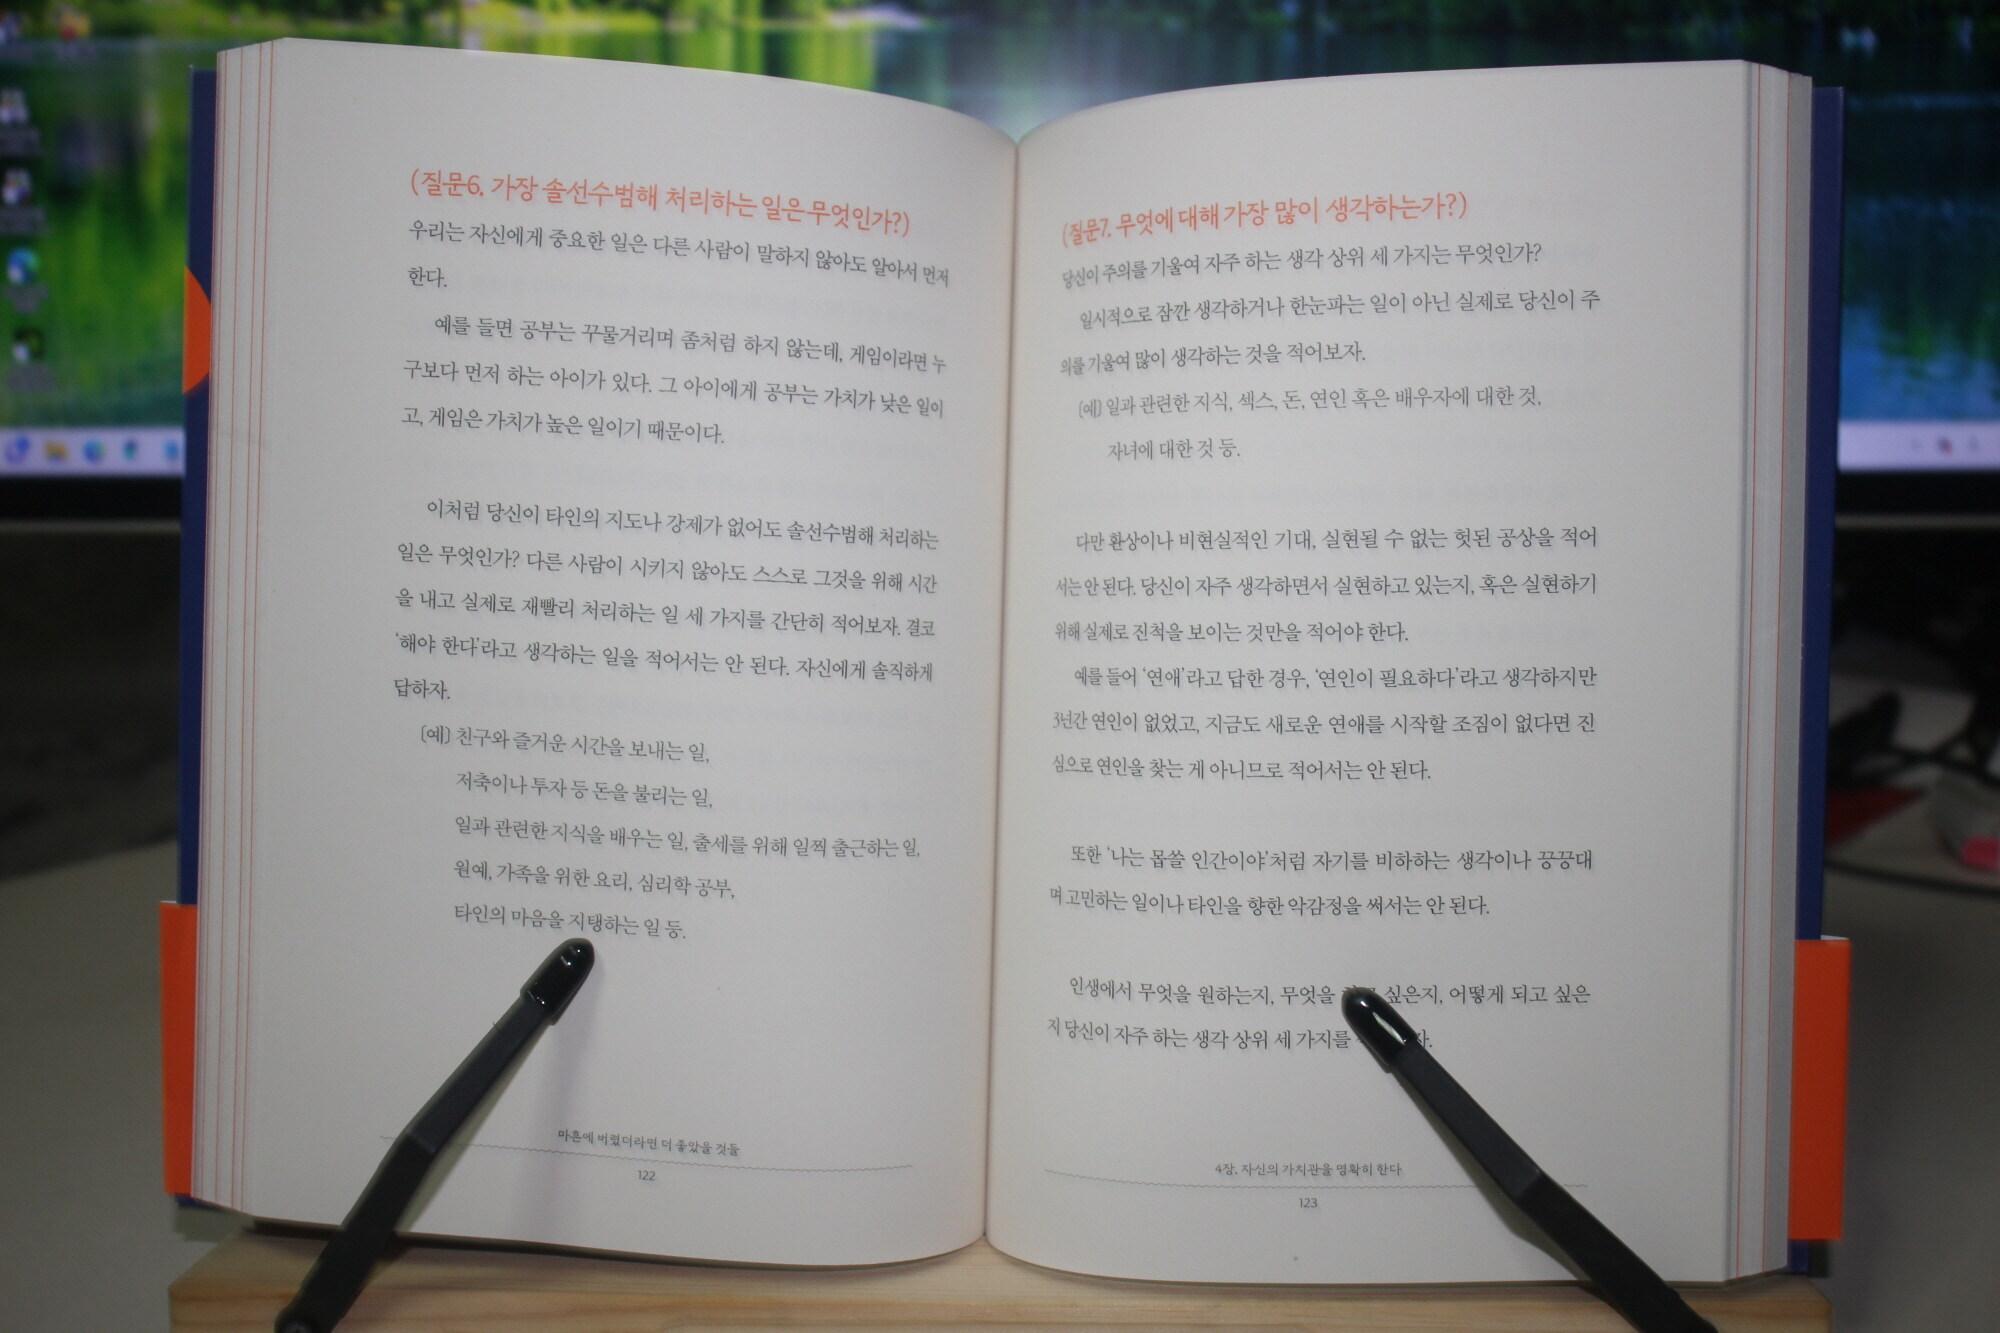 (질문6. 가장 솔선수범해 처리하는 일은 무엇인가?)
우리는 자신에게 중요한 일은 다른 사람이 말하지 않아도 알아서 먼저
한다.
예를 들면 공부는 꾸물거리며 좀처럼 하지 않는데, 게임이라면 누
구보다 먼저 하는 아이가 있다. 그 아이에게 공부는 가치가 낮은 일이
고, 게임은 가치가 높은 일이기 때문이다.
이처럼 당신이 타인의 지도나 강제가 없어도 솔선수범해 처리하는
일은 무엇인가? 다른 사람이 시키지 않아도 스스로 그것을 위해 시간
을 내고 실제로 재빨리 처리하는 일 세 가지를 간단히 적어보자. 결코
‘해야 한다’라고 생각하는 일을 적어서는 안 된다. 자신에게 솔직하게
답하자.
(예) 친구와 즐거운 시간을 보내는 일,
저축이나 투자 등 돈을 불리는 일,
일과 관련한 지식을 배우는 일, 출세를 위해 일찍 출근하는 일,
원예, 가족을 위한 요리, 심리학 공부,
타인의 마음을 지탱하는 일 등.
마흔에 버렸더라면 더 좋았을 것들
122
(질문7. 무엇에 대해 가장 많이 생각하는가?)
당신이 주의를 기울여 자주 하는 생각 상위 세 가지는 무엇인가?
일시적으로 잠깐 생각하거나 한눈파는 일이 아닌 실제로 당신이 주
의를 기울여 많이 생각하는 것을 적어보자.
(예) 일과 관련한 지식, 섹스, 돈, 연인 혹은 배우자에 대한 것,
자녀에 대한 것 등.
다만 환상이나 비현실적인 기대, 실현될 수 없는 헛된 공상을 적어
서는 안 된다. 당신이 자주 생각하면서 실현하고 있는지, 혹은 실현하기
위해 실제로 진척을 보이는 것만을 적어야 한다.
예를 들어 ‘연애’라고 답한 경우, ‘연인이 필요하다’라고 생각하지만
3년간 연인이 없었고, 지금도 새로운 연애를 시작할 조짐이 없다면 진
심으로 연인을 찾는 게 아니므로 적어서는 안 된다.
또한 ‘나는 몹쓸 인간이야’처럼 자기를 비하하는 생각이나 끙끙대
며 고민하는 일이나 타인을 향한 악감정을 써서는 안 된다.
인생에서 무엇을 원하는지, 무엇을 싶은지, 어떻게 되고 싶은
지 당신이 자주 하는 생각 상위 세 가지를
4장. 자신의 가치관을 명확히 한다
123